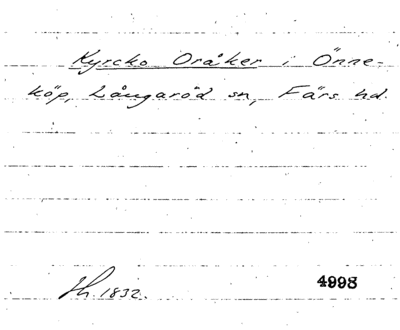 Kyrcko Oråker i Önne-
köp, Långaröd sn, Färs hd.
1832.
4998